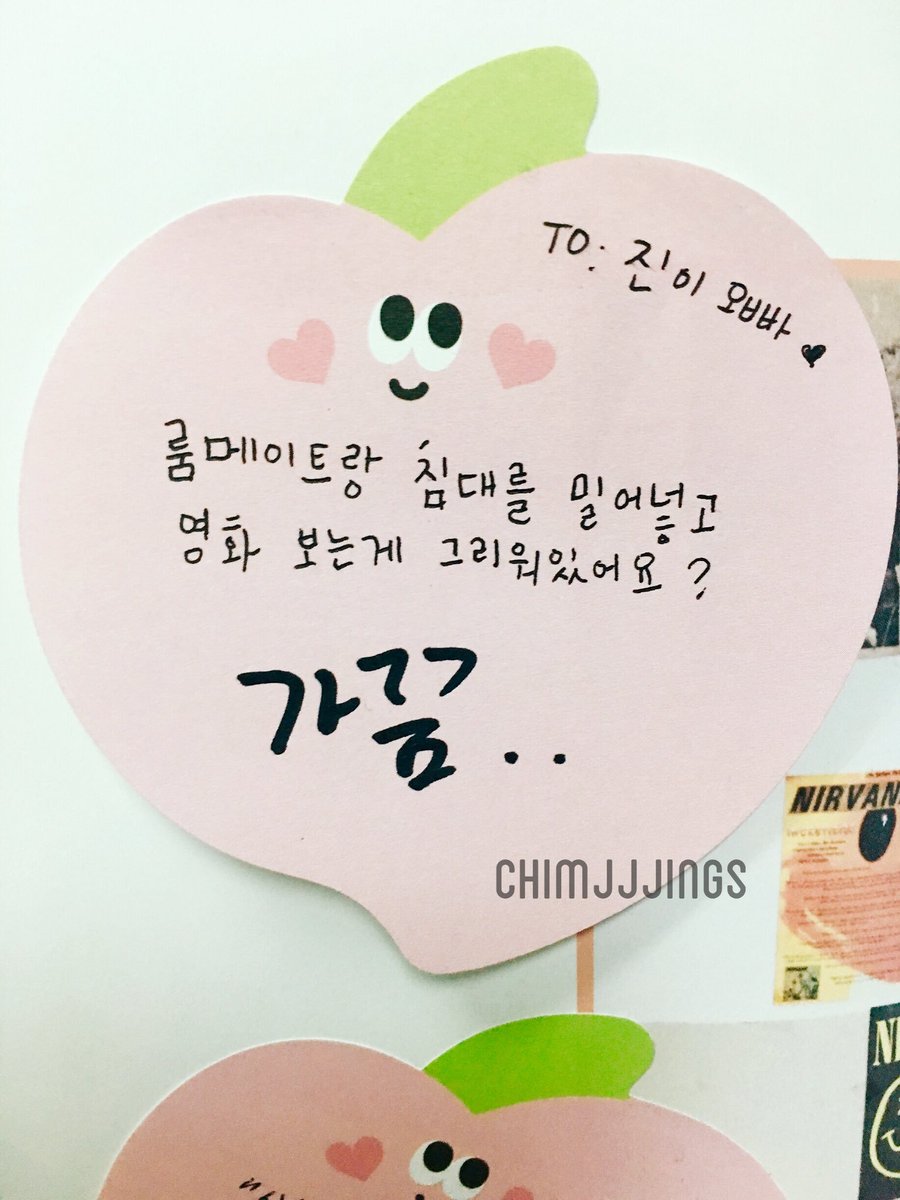 TO: 진이 오빠 ♥
룸메이트랑 침대를 밀어넣고
영화 보는게 그리워있어요?
가끔..
CHIMJJJINGS
NIRVAN